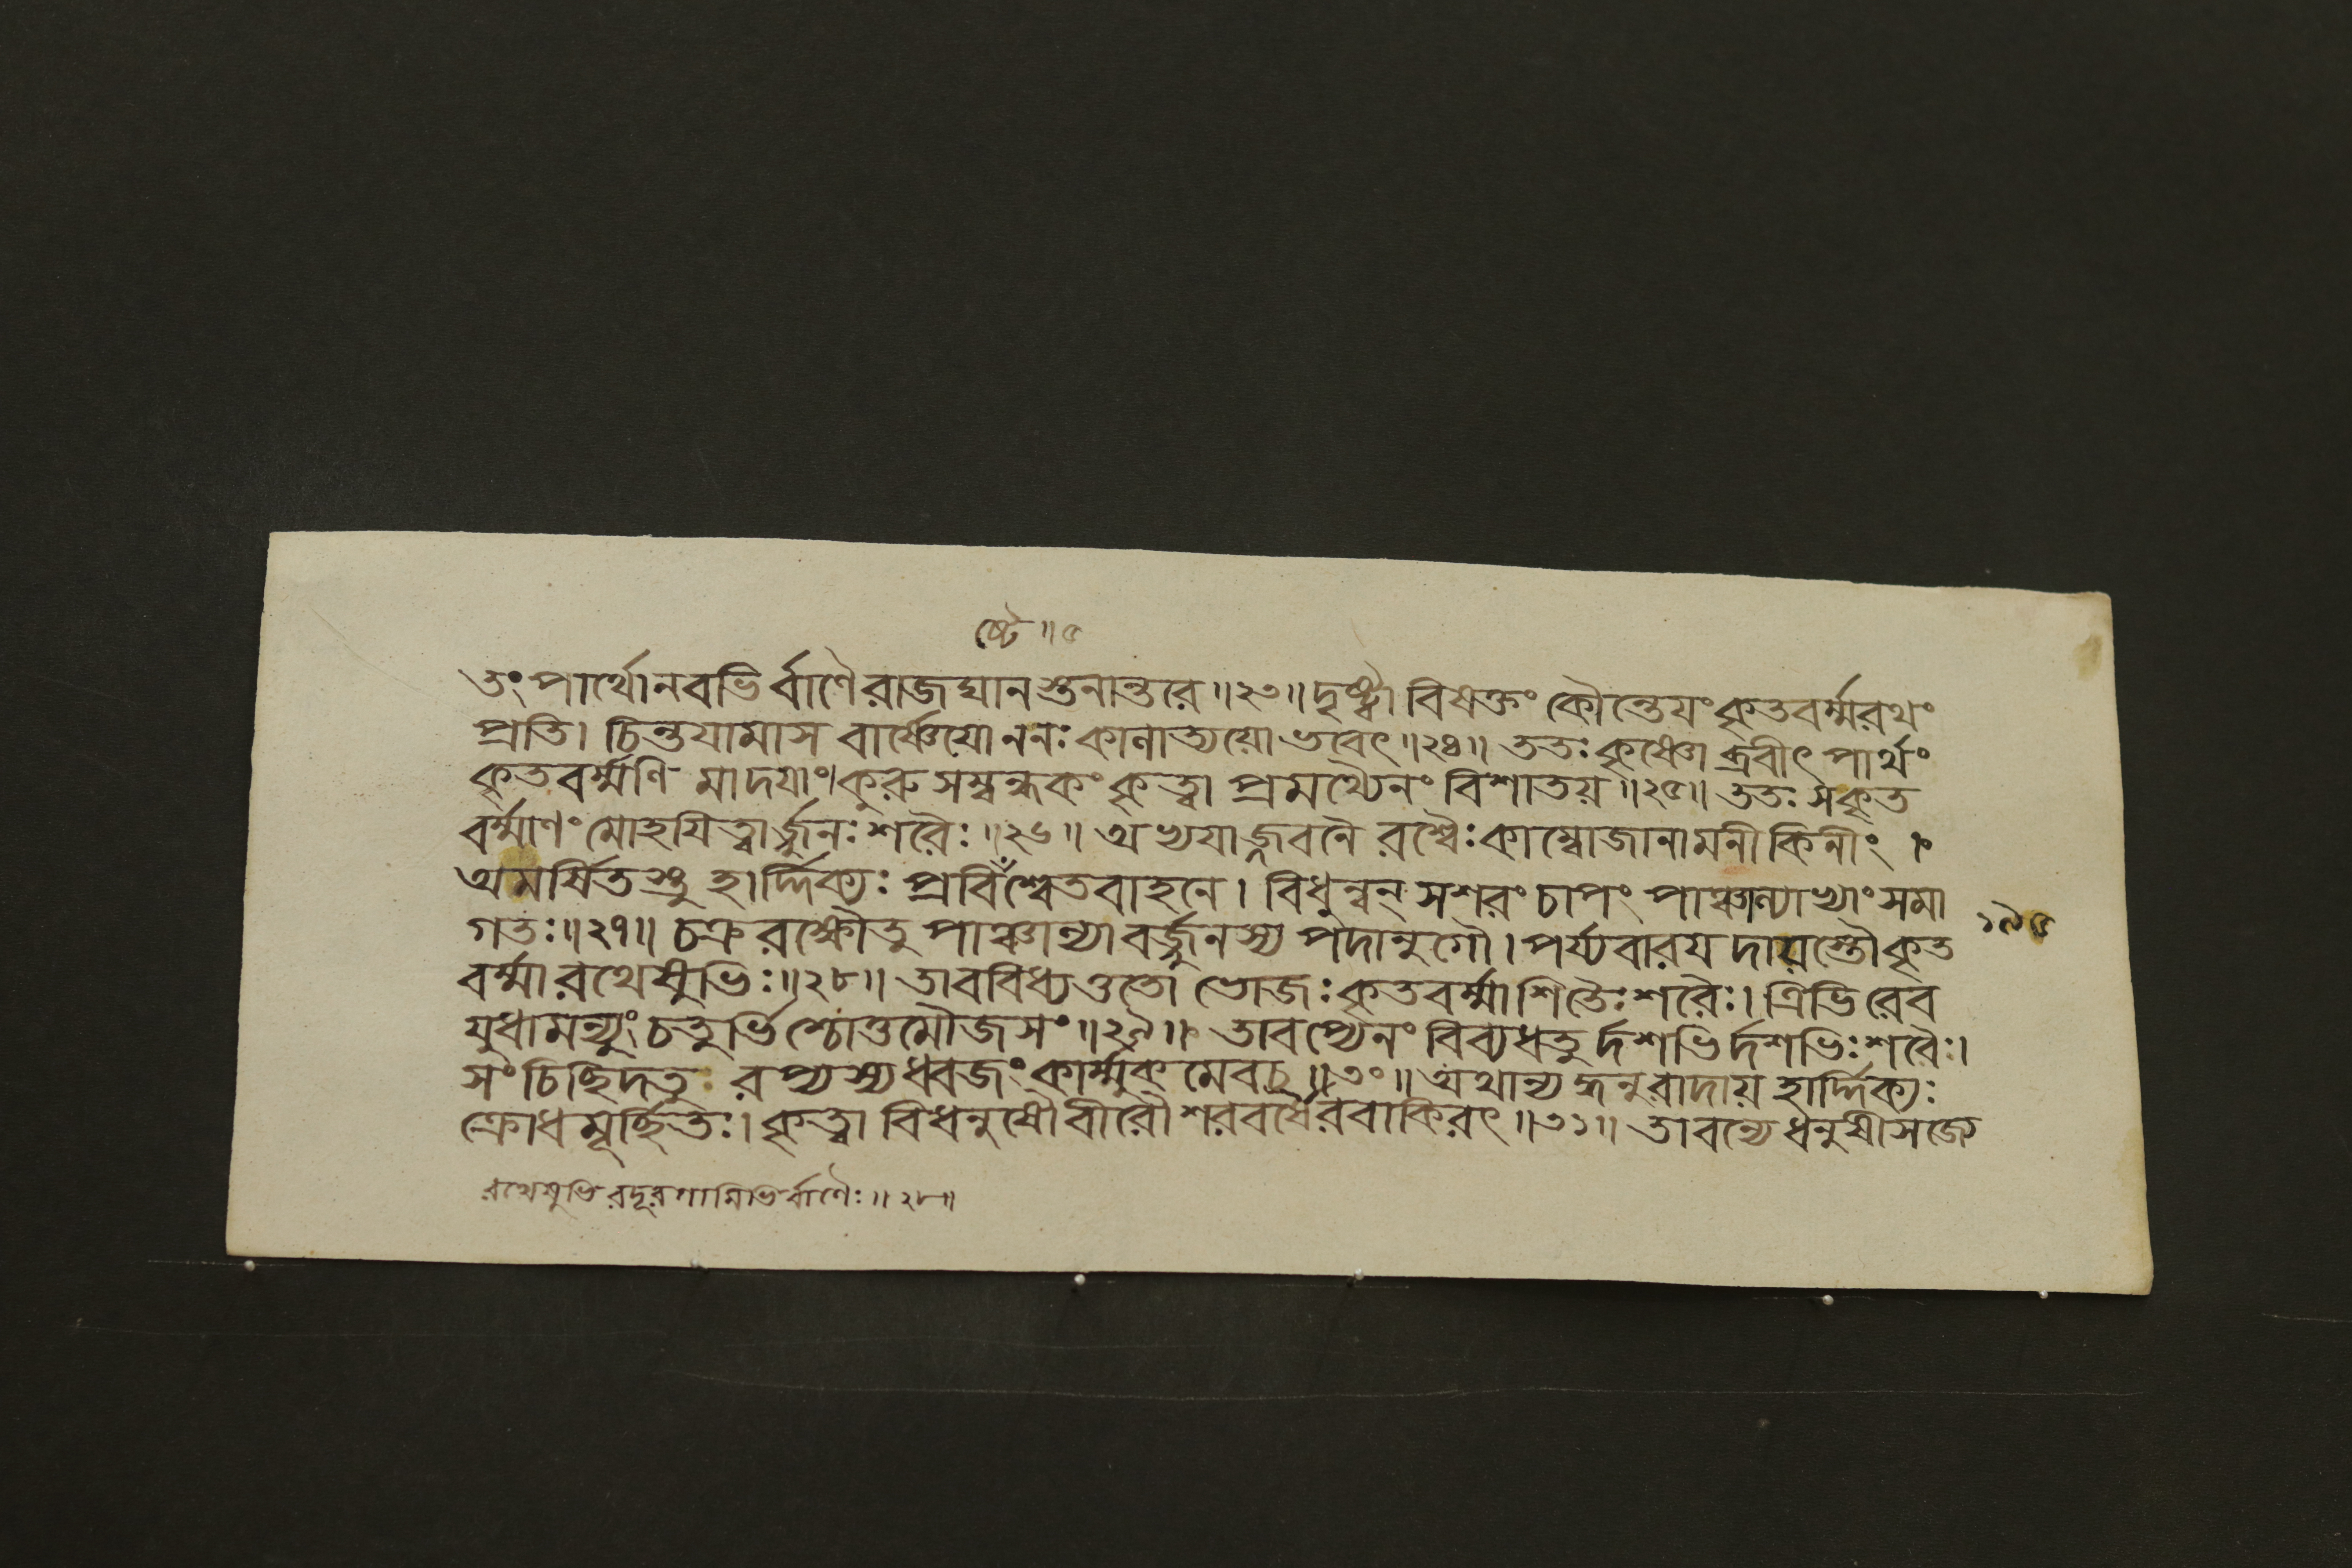 ষ্টে ॥ ৫
তং পার্থো নবভির্ব্বাণৈরাজঘান স্তনান্তরে ॥ ২৩ ॥ দৃষ্ট্বা বিষক্তং কৌন্তেয়ং কৃতবর্ম্মরথং
প্রতি। চিন্তয়ামাস বার্ষ্ণেয়ো ন নঃ কালাত্যয়ো ভবেৎ ॥ ২৪ ॥ ততঃ কৃষ্ণোব্রবীৎ পার্থং
কৃতবর্ম্মণি মা দয়াং। কুরু সম্বন্ধকং কৃত্বা প্রমথ্যৈনং বিশাতয় ॥ ২৫ ॥ ততঃ স কৃত
বর্ম্মাণং মোহয়িত্বার্জ্জুনঃ শরৈঃ ॥ ২৬ ॥ অভ্যযাজ্জবনৈরশ্বৈঃ কাম্বোজানামনীকিনীং ।
অমর্ষিতস্তু হার্দ্দিক্যঃ প্রবিশ্বেতবাহনে। বিধুন্বন্ সশরং চাপং পাঞ্চাল্যাভ্যাং সমা
গতঃ ॥ ২৭ ॥ চক্ররক্ষৌ তু পাঞ্চাল্যাবর্জ্জুনস্য পদানুগৌ। পর্য্যবারয়দায়স্তৌ কৃত ১৯৫
বর্ম্মা রথেষুভিঃ ॥ ২৮ ॥ তাববিধ্যত্ততো ভোজঃ কৃতবর্ম্মা শিতৈঃ শরৈঃ। ত্রিভিরেব
যুধামন্যুং চতুর্ভিশ্চোত্তমৌজসং ॥ ২৯ ॥ তাবপ্যেনং বিব্যধতুর্দশভির্দশভিঃ শরৈঃ।
সংচিচ্ছিদতুরপ্যস্য ধ্বজং কার্ম্মুকমেব চ ॥ ৩০ ॥ অথান্যদ্ধনুরাদায় হার্দ্দিক্যঃ
ক্রোধমূর্চ্ছিতঃ। কৃত্বা বিধনুষৌ বীরৌ শরবর্ষৈরবাকিরৎ ॥ ৩১ ॥ তাবন্যে ধনুষী সজ্যে
রথেষুভিরদূরগামিভির্বাণৈঃ ॥ ২৮ ॥